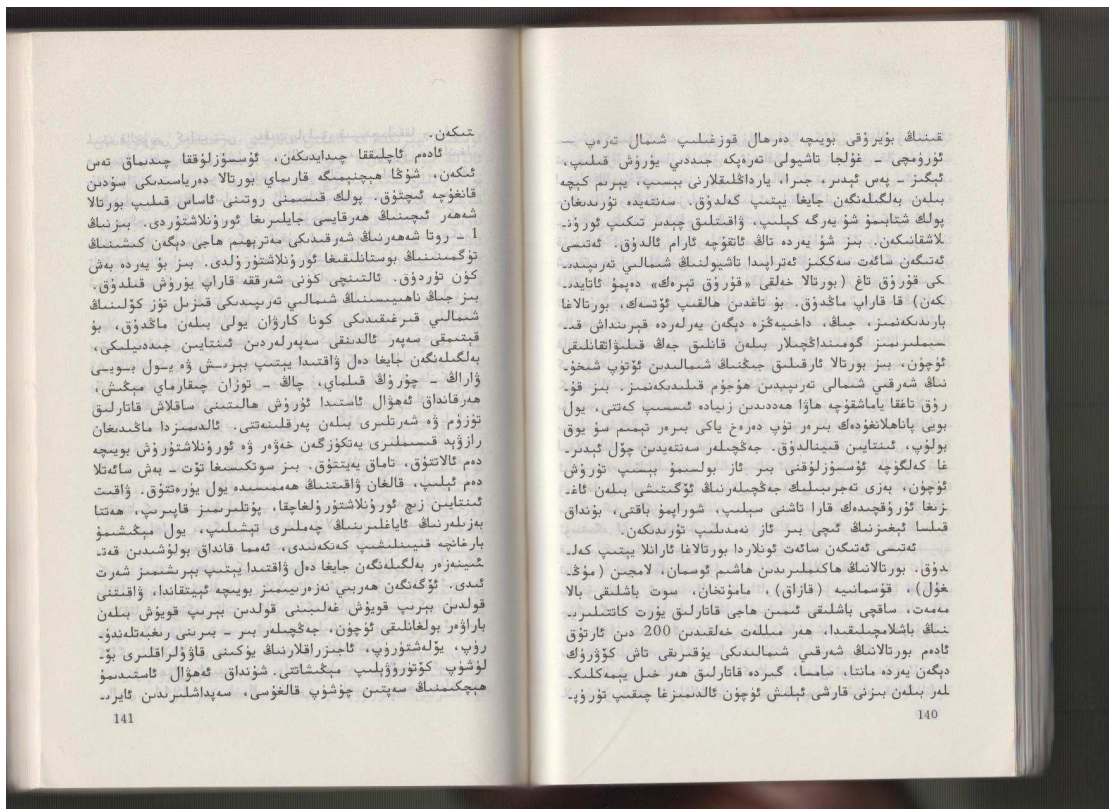 قىنىڭ بۇيرۇقى بويىچە دەرھال قوزغىلىپ شىمال تەرەپ —
ئۈرۈمچى - غۇلجا تاشيولى تەرەپكە جىددىي يۈرۈش قىلىپ،
ئېگىز - پەس ئېدىر، جىرا، يارداڭلىقلارنى بېسىپ، يېرىم كېچە
بىلەن بەلگىلەنگەن جايغا يېتىپ كەلدۇق. سەنتەيدە تۇرىدىغان
پولك شتابىمۇ شۇ يەرگە كېلىپ، ۋاقىتلىق چېدىر تىكىپ ئورۇنـ
لاشقانىكەن. بىز شۇ يەردە تاڭ ئاتقۇچە ئارام ئالدۇق. ئەتىسى
ئەتىگەن سائەت سەككىز ئەتراپىدا تاشيولنىڭ شىمالىي تەرىپىدىـ
كى قۇرۇق تاغ (بورتالا خەلقى «قۇرۇق تېرەك» دەپمۇ ئاتايدىـ
كەن) قا قاراپ ماڭدۇق. بۇ تاغدىن ھالقىپ ئۆتسەك، بورتالاغا
بارىدىكەنمىز، جىڭ، داخىيەڭزە دېگەن يەرلەردە قېرىنداش قىـ
سىملىرىمىز گومىنداڭچىلار بىلەن قانلىق جەڭ قىلىۋاتقانلىقى
ئۈچۈن، بىز بورتالا ئارقىلىق جىڭنىڭ شىمالىدىن ئۆتۈپ شىخۇـ
نىڭ شەرقىي شىمالى تەرىپىدىن ھۇجۇم قىلىدىكەنمىز. بىز قۇـ
رۇق تاغقا ياماشقۇچە ھاۋا ھەددىدىن زىيادە ئىسسىپ كەتتى، يول
بويى پاناھلانغۇدەك بىرەر تۈپ دەرەخ ياكى بىرەر تېمىم سۇ يوق
بولۇپ، ئىنتايىن قىينالدۇق. جەڭچىلەر سەنتەيدىن چۆل ئېدىرـ
غا كەلگۈچە ئۇسسۇزلۇقنى بىر ئاز بولسىمۇ بېسىپ تۇرۇش
ئۈچۈن، بەزى تەجرىبىلىك جەڭچىلەرنىڭ ئۆگىتىشى بىلەن ئاغـ
زىغا ئۇرۇقچىدەك قارا تاشنى سېلىپ، شوراپمۇ باقتى، بۇنداق
قىلسا ئېغىزنىڭ ئىچى بىر ئاز نەمدىلىپ تۇرىدىكەن.
ئەتىسى ئەتىگەن سائەت ئونلاردا بورتالاغا ئارانلا يېتىپ كەلـ
دۇق. بورتالانىڭ ھاكىملىرىدىن ھاشىم ئوسمان، لامجىن (موڭـ
غۇل)، قۇسمانىيە (قازاق)، مامۇتخان، سوت باشلىقى بالا
مەمەت، ساقچى باشلىقى ئىمىن ھاجى قاتارلىق يۇرت كاتتىلىرىـ
نىڭ باشلامچىلىقىدا، ھەر مىللەت خەلقىدىن 200 دىن ئارتۇق
ئادەم بورتالانىڭ شەرقىي شىمالىدىكى يۇقىرىقى تاش كۆۋرۈك
دېگەن يەردە مانتا، سامسا، گىردە قاتارلىق ھەر خىل يېمەكلىكـ
لەر بىلەن بىزنى قارشى ئېلىش ئۈچۈن ئالدىمىزغا چىقىپ تۇرۇپـ
140
تىكەن.
ئادەم ئاچلىققا چىدايدىكەن، ئۇسسۇزلۇققا چىدىماق تەس
ئىكەن، شۇڭا ھېچنېمىگە قارىماي بورتالا دەرياسىدىكى سۇدىن
قانغۇچە ئىچتۇق. پولك قىسىمنى روتىنى ئاساس قىلىپ بورتالا
شەھەر ئىچىنىڭ ھەرقايسى جايلىرىغا ئورۇنلاشتۇردى. بىزنىڭ
1 - روتا شەھەرنىڭ شەرقىدىكى مەترېھىم ھاجى دېگەن كىشىنىڭ
تۈگمىنىنىڭ بوستانلىقىغا ئورۇنلاشتۇرۇلدى. بىز بۇ يەردە بەش
كۈن تۇردۇق. ئالتىنچى كۈنى شەرققە قاراپ يۈرۈش قىلدۇق.
بىز جىڭ ناھىيىسىنىڭ شىمالىي تەرىپىدىكى قىزىل تۇز كۆلىنىڭ
شىمالىي قىرغىقىدىكى كونا كارۋان يولى بىلەن ماڭدۇق، بۇ
قېتىمقى سەپەر ئالدىنقى سەپەرلەردىن ئىنتايىن جىددىيلىكى،
بەلگىلەنگەن جايغا دەل ۋاقتىدا يېتىپ بېرىش ۋە يول بويى
ۋاراڭ - چۇرۇڭ قىلماي، چاڭ - توزان چىقارماي مېڭىش،
ھەرقانداق ئەھۋال ئاستىدا ئۇرۇش ھالىتىنى ساقلاش قاتارلىق
تۈزۈم ۋە شەرتلىرى بىلەن پەرقلىنەتتى. ئالدىمىزدا ماڭىدىغان
رازۋېد قىسىملىرى يەتكۈزگەن خەۋەر ۋە ئورۇنلاشتۇرۇش بويىچە
دەم ئالاتتۇق، تاماق يەيتتۇق، بىز سوتكىسىغا تۆت - بەش سائەتلا
دەم ئېلىپ، قالغان ۋاقىتنىڭ ھەممىسىدە يول يۈرەتتۇق. ۋاقىت
ئىنتايىن زىچ ئورۇنلاشتۇرۇلغاچقا، پۇتلىرىمىز قاپىرىپ، ھەتتا
بەزىلەرنىڭ ئاياغلىرىنىڭ چەملىرى تېشىلىپ، يول مېڭىشىمۇ
بارغانچە قىيىنلىشىپ كەتكەنىدى، ئەمما قانداق بولۇشىدىن قەتـ
ئىينەزەر بەلگىلەنگەن جايغا دەل ۋاقتىدا يېتىپ بېرىشىمىز شەرت
ئىدى. ئۆگەنگەن ھەربىي نەزەرىيىمىز بويىچە ئېيتقاندا، ۋاقىتنى
قولدىن بېرىپ قويۇش غەلىبىنى قولدىن بېرىپ قويۇش بىلەن
باراۋەر بولغانلىقى ئۈچۈن، جەڭچىلەر بىر - بىرىنى رىغبەتلەندۈـ
رۈپ، يۆلەشتۈرۈپ، ئاجىزراقلارنىڭ يۈكىنى قاۋۇلراقلىرى بۆـ
لۈشۈپ كۆتۈرۈۋېلىپ مېڭىشاتتى. شۇنداق ئەھۋال ئاستىدىمۇ
ھېچكىمنىڭ سەپتىن چۈشۈپ قالغۇسى، سەپداشلىرىدىن ئايرىـ
141